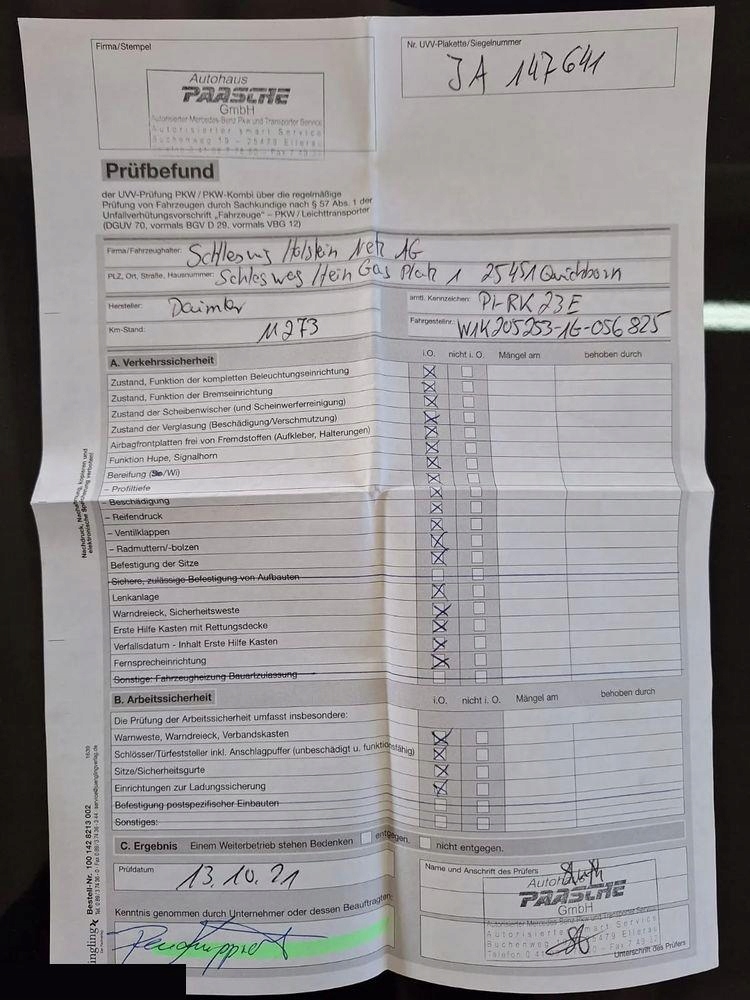 Firma/Stempel
Nr. UVV-Plakette/Siegelnummer
JA 147641
Autohaus
PAASCHE
GmbH
Autorisierter Mercedes-Benz Pkw und Transporter Service
Autorisierter smart Service
Buchenweg 19 - 25479 Ellerau
Prüfbefund
der UVV-Prüfung PKW / PKW-Kombi über die regelmäßige
Prüfung von Fahrzeugen durch Sachkundige nach § 57 Abs. 1 der
Unfallverhütungsvorschrift „Fahrzeuge“ – PKW / Leichttransporter
(DGUV 70, vormals BGV D 29, vormals VBG 12)
Firma/Fahrzeughalter: Schleswig Holstein Netz AG
PLZ, Ort, Straße, Hausnummer: Schleswag Hein Gas Platz 1 25451 Quickborn
Hersteller: Daimler
amtl. Kennzeichen: PI-RK 23E
Km-Stand: 11273
Fahrgestellnr.: W1K205253-1G-056825
A. Verkehrssicherheit
i.O. nicht i. O. Mängel am behoben durch
Zustand, Funktion der kompletten Beleuchtungseinrichtung
Zustand, Funktion der Bremseinrichtung
Zustand der Scheibenwischer (und Scheinwerferreinigung)
Zustand der Verglasung (Beschädigung/Verschmutzung)
Airbagfrontplatten frei von Fremdstoffen (Aufkleber, Halterungen)
Funktion Hupe, Signalhorn
Bereifung (So/Wi)
– Profiltiefe
– Beschädigung
– Reifendruck
– Ventilklappen
– Radmuttern/-bolzen
Befestigung der Sitze
Sichere, zulässige Befestigung von Aufbauten
Lenkanlage
Warndreieck, Sicherheitsweste
Erste Hilfe Kasten mit Rettungsdecke
Verfallsdatum - Inhalt Erste Hilfe Kasten
Fernsprecheinrichtung
Sonstige: Fahrzeugheizung Bauartzulassung
B. Arbeitssicherheit
i.O. nicht i. O. Mängel am behoben durch
Die Prüfung der Arbeitssicherheit umfasst insbesondere:
Warnweste, Warndreieck, Verbandskasten
Schlösser/Türfeststeller inkl. Anschlagpuffer (unbeschädigt u. funktionsfähig)
Sitze/Sicherheitsgurte
Einrichtungen zur Ladungssicherung
Befestigung postspezifischer Einbauten
Sonstiges:
C. Ergebnis Einem Weiterbetrieb stehen Bedenken entgegen. nicht entgegen.
Prüfdatum
13.10.21
Name und Anschrift des Prüfers
Autohaus
PAASCHE
GmbH
Autorisierter Mercedes-Benz Pkw und Transporter Service
Autorisierter smart Service
Buchenweg 19 - 25479 Ellerau
Kenntnis genommen durch Unternehmer oder dessen Beauftragten:
Unterschrift des Prüfers
Nachdruck, Nachahmung, kopieren und
elektronische Speicherung verboten!
Bestell-Nr. 100 142 8213 002
1639